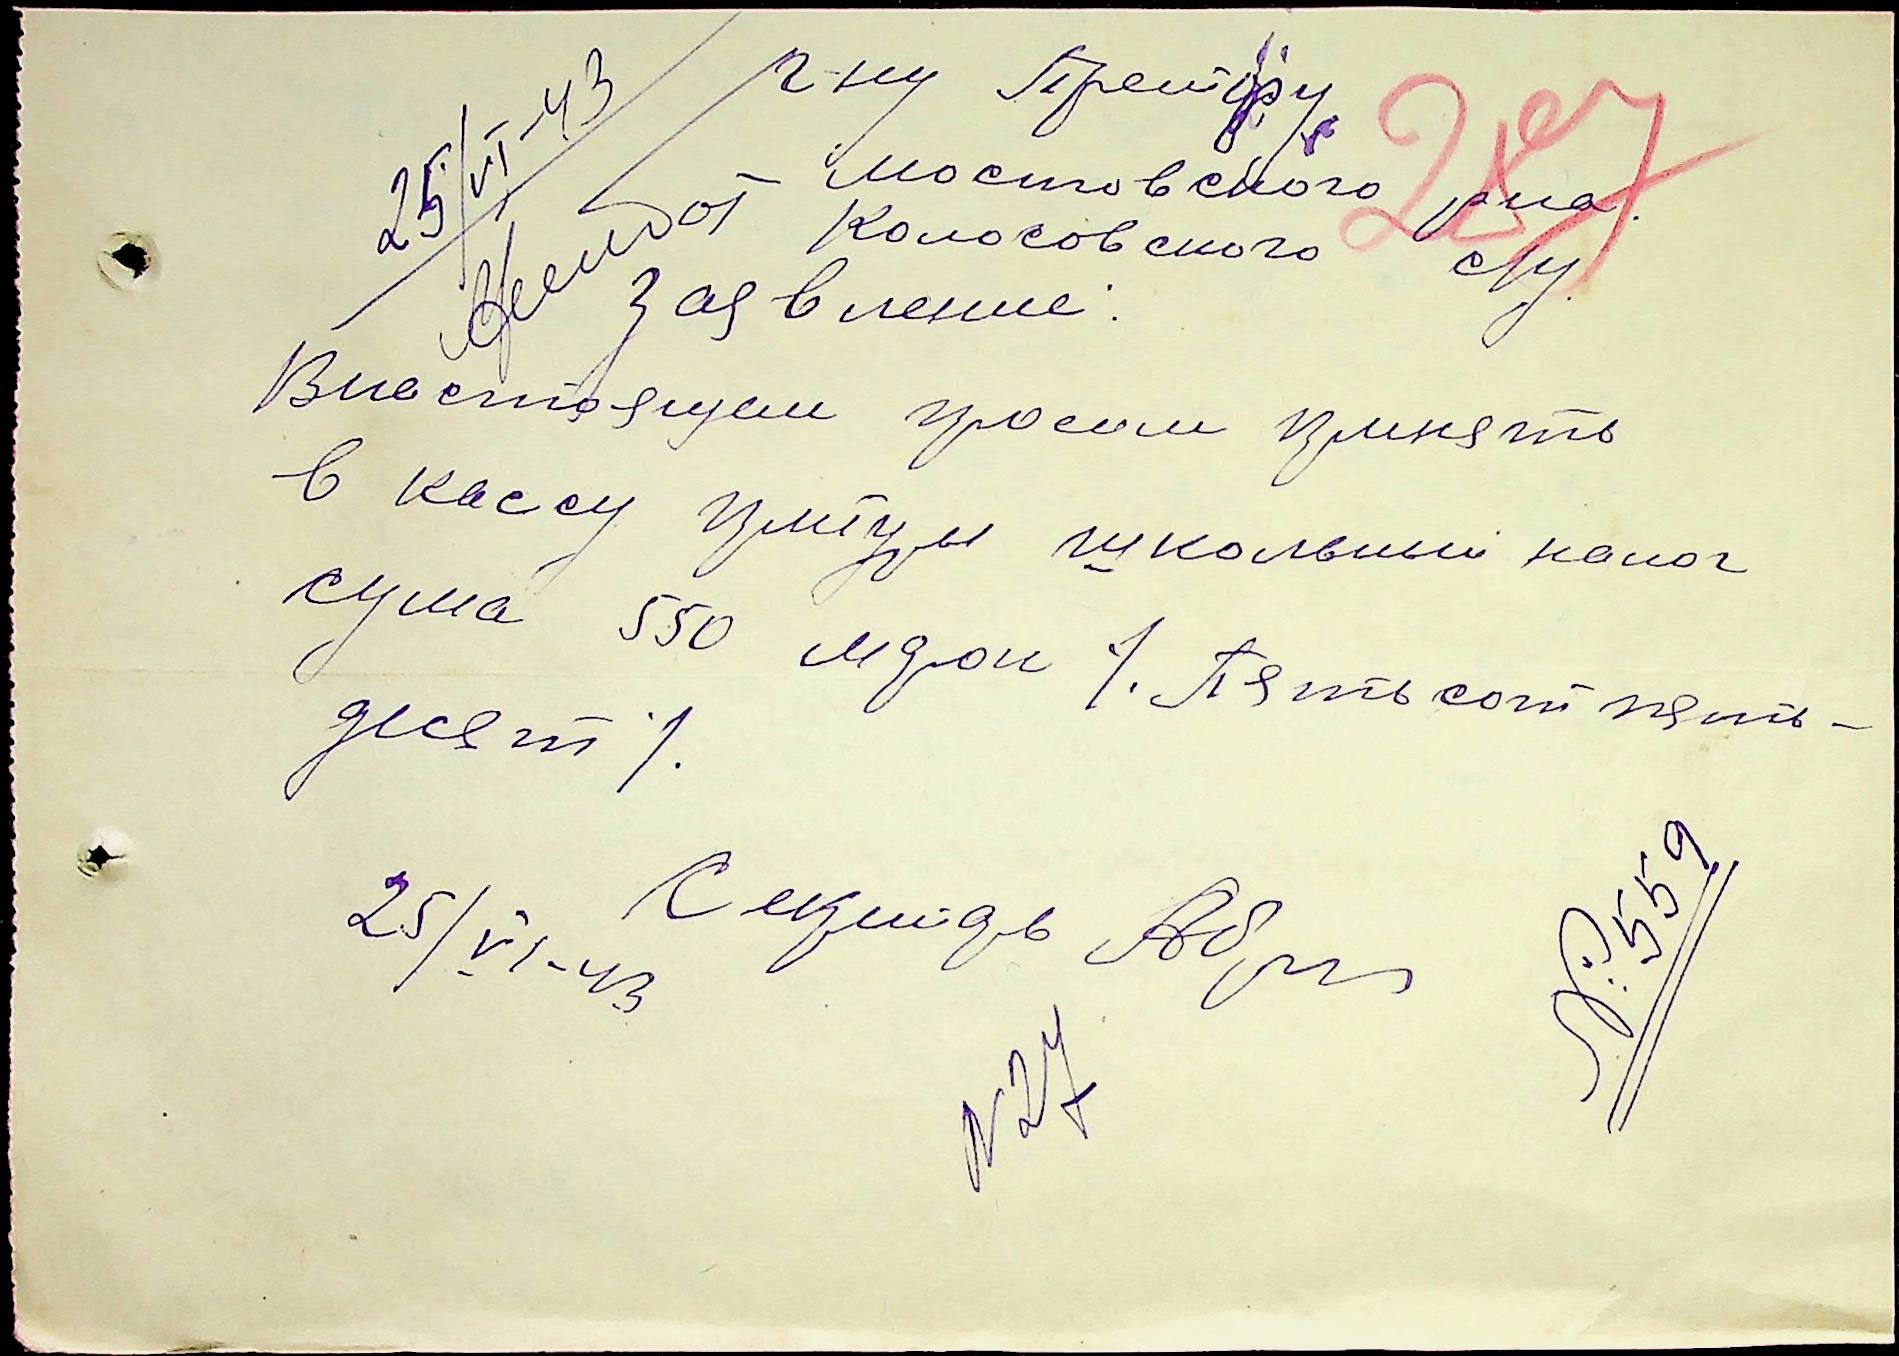 25/VI-43
г-ну Претору
Мостовского р-на.
от Колосовского с/у.
Заявление:
В настоящем просим принять
в кассу школьный налог
сума 550 марок /. Пятьсот пять-
десят /.
25/VI-43
N 27
№: 559